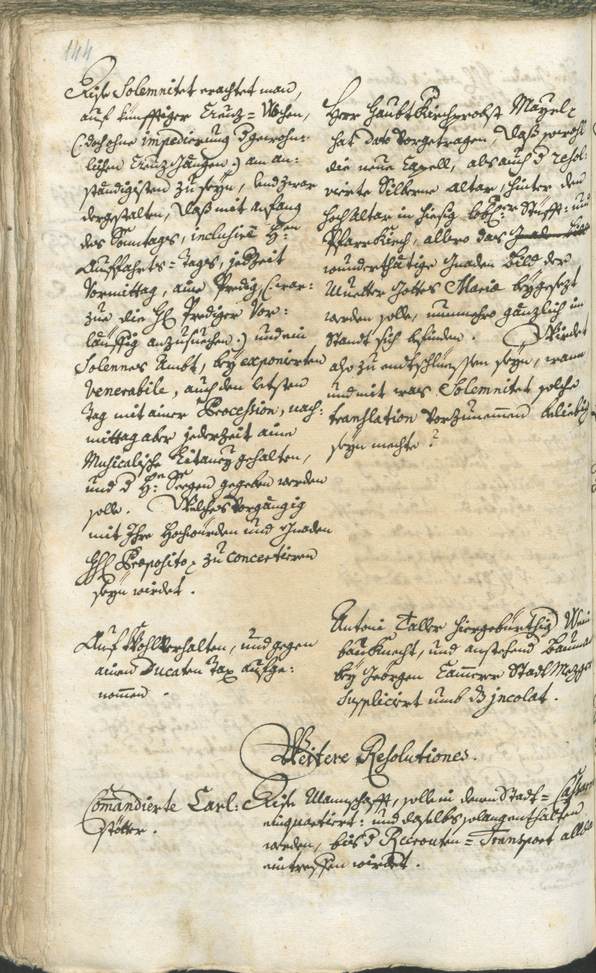 144
Diese Solemnitet erachtet man,
auf künfftiger Creuz-Wochen,
(: doch ohne impedierung d gewohn-
lichen Creuz Gängen :) am an-
ständigisten zu seyn, und zwar
dergestalten, daß mit anfang
des Sonntages, inclusive H:en
Auffahrts-Tages, jedZeit
Vormittag, aine Predig (: war-
zue die HH. Prediger vor-
läuffig anzusuechen :) und ein
Solennes Ambt, bey exponierten
Venerabile, auch den letsten
Tag mit ainer Procession, nach-
mittag aber jederzeit aine
Musicalische Litaney gehalten,
und d H: Seegen gegeben werden
solle. Welches vorgängig
mit Ihro Hochwürden und Gnaden
HH. Praeposito zu concertieren
seyn wirdet.
Herr HaubtKirchprobst Mayel
hat dato vorgetragen, daß sowohl
die neue Capell, als auch d resol-
vierte Silberne altar, hinter dem
Hoch Altar in hiesig Stüfft- und
Pfarrkirch, allwo das
wunderthätige Gnaden Bild der
Muetter Gottes Mariae beygesezt
werden solle, nunmehro gänzlich in
Standt sich befinden. Wirdet
also zu entschlüessen seyn, wann
und mit was Solemnitet solche
translation vorzunemmen beliebig
seyn mechte?
Auf Wohlverhalten, und gegen
ainen Ducaten Tax aufge-
nommen.
Antoni Taller hiergebürthig Wein
bauKnecht, und anstehend Bauman
bey Georgen Cammerer Stadt Mezger
Supplicirt umb dz jncolat.
Weitere Resolutiones.
Comandierte Carl-
stötter.
Dise Mannschafft, solle in denen Stadt-
einquartiert: und daselbs solang enthalten
werden, bis d Recrouten-Transport alld
eintreffen wirdet.